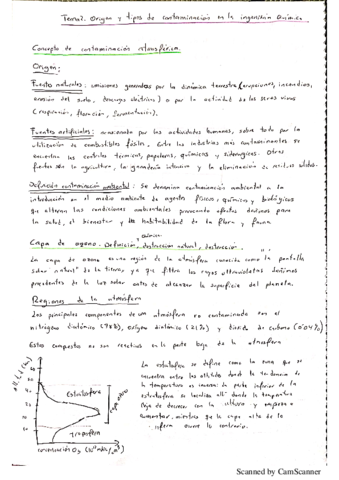 Tema 2. Origen y tipos de contaminación en la ingeniería Química
Concepto de contaminación atmosférica.
Origen:
Fuentes naturales: emisiones generadas por la dinámica terrestre (erupciones, incendios,
erosión del suelo, descargas eléctricas) o por la actividad de los seres vivos
(respiración, floración, fermentación).
Fuentes artificiales: ocasionado por las actividades humanas, sobre todo por la
utilización de combustibles fósiles. Entre las industrias más contaminantes se
encuentran las centrales térmicas, papeleras, químicas y siderúrgicas. Otras
fuentes son la agricultura, la ganadería intensiva y la eliminación de residuos sólidos.
Definición contaminación ambiental: Se denomina contaminación ambiental a la
introducción en el medio ambiente de agentes físicos, químicos y biológicos
que alteran las condiciones ambientales provocando efectos dañinos para
la salud, el bienestar y la habitabilidad de la flora y fauna
Capa de ozono - Definición, destrucción natural, destrucción
La capa de ozono es una región de la atmósfera conocida como la pantalla
solar natural de la tierra, ya que filtra los rayos ultravioletas dañinos
procedentes de la luz solar antes de alcanzar la superficie del planeta.
Regiones de la atmósfera
Los principales componentes de una atmósfera no contaminada son el
nitrógeno diatómico (78%), oxígeno diatómico (21%) y dióxido de carbono (0'04%)
Estos compuestos no son reactivos en la parte baja de la atmósfera
La estratosfera se define como la zona que se
encuentra entre las altitudes donde la tendencia de
la temperatura es inversa: la parte inferior de la
estratosfera se localiza allí donde la temperatura
deja de decrecer con la altura y empieza a
aumentar, mientras que la capa alta de la
esfera ocurre lo contrario.
Estratosfera
Capa ozono
Troposfera
concentración O3
Scanned by CamScanner